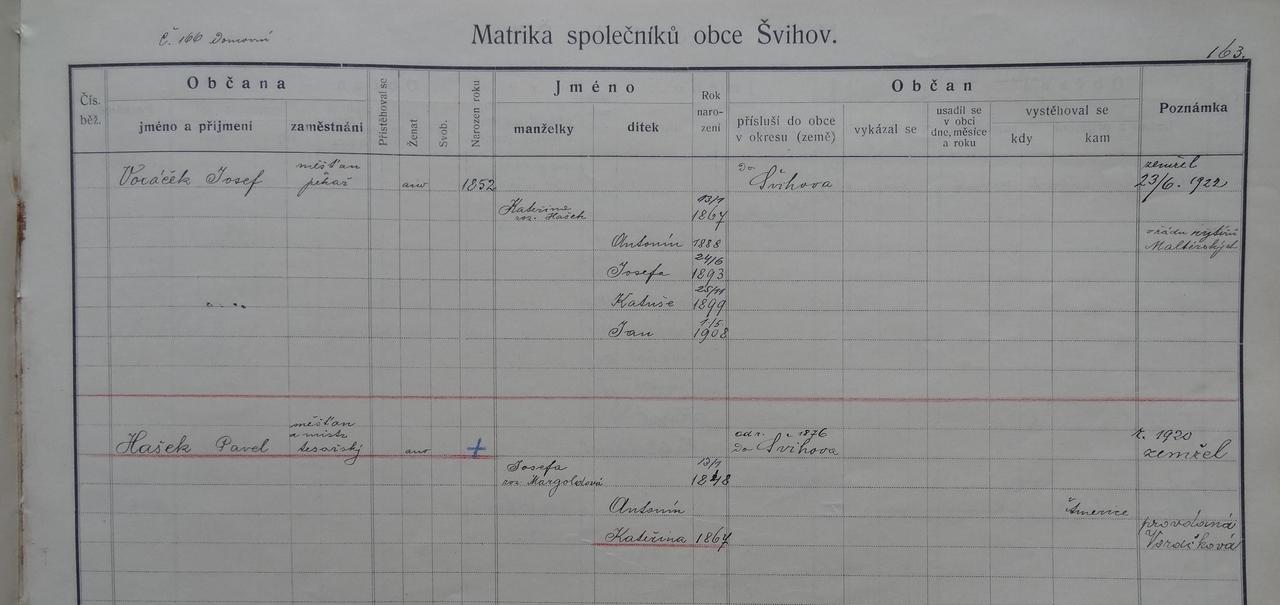 č. 166 Domovní
Matrika společníků obce Švihov.
163.
Čís. běž.
Občana
jméno a příjmení
zaměstnání
Přistěhoval se
Ženat
Svob.
Narozen roku
Jméno
manželky
dítek
Rok naro- zení
Občan
přísluší do obce v okresu (země)
vykázal se
usadil se v obci dne, měsíce a roku
vystěhoval se
kdy
kam
Poznámka
Voráček Josef
měšťan
pekař
ano
1852
Do
Švihova
zemřel
23/6. 1922
Kateřina
roz. Hašek
13/1
1867
Antonín 1888
z řádu rytířů
Maltézských
Josefa
24/6
1893
Katuše
25/11
1899
Jan
1/5
1908
Hašek Pavel
měšťan
a mistr
tesařský
ano
+
od r. 1876
Do Švihova
r. 1920
zemřel
Josefa
roz. Margoldová
13/1
1848
Antonín
Americe
Kateřina 1867
provdaná